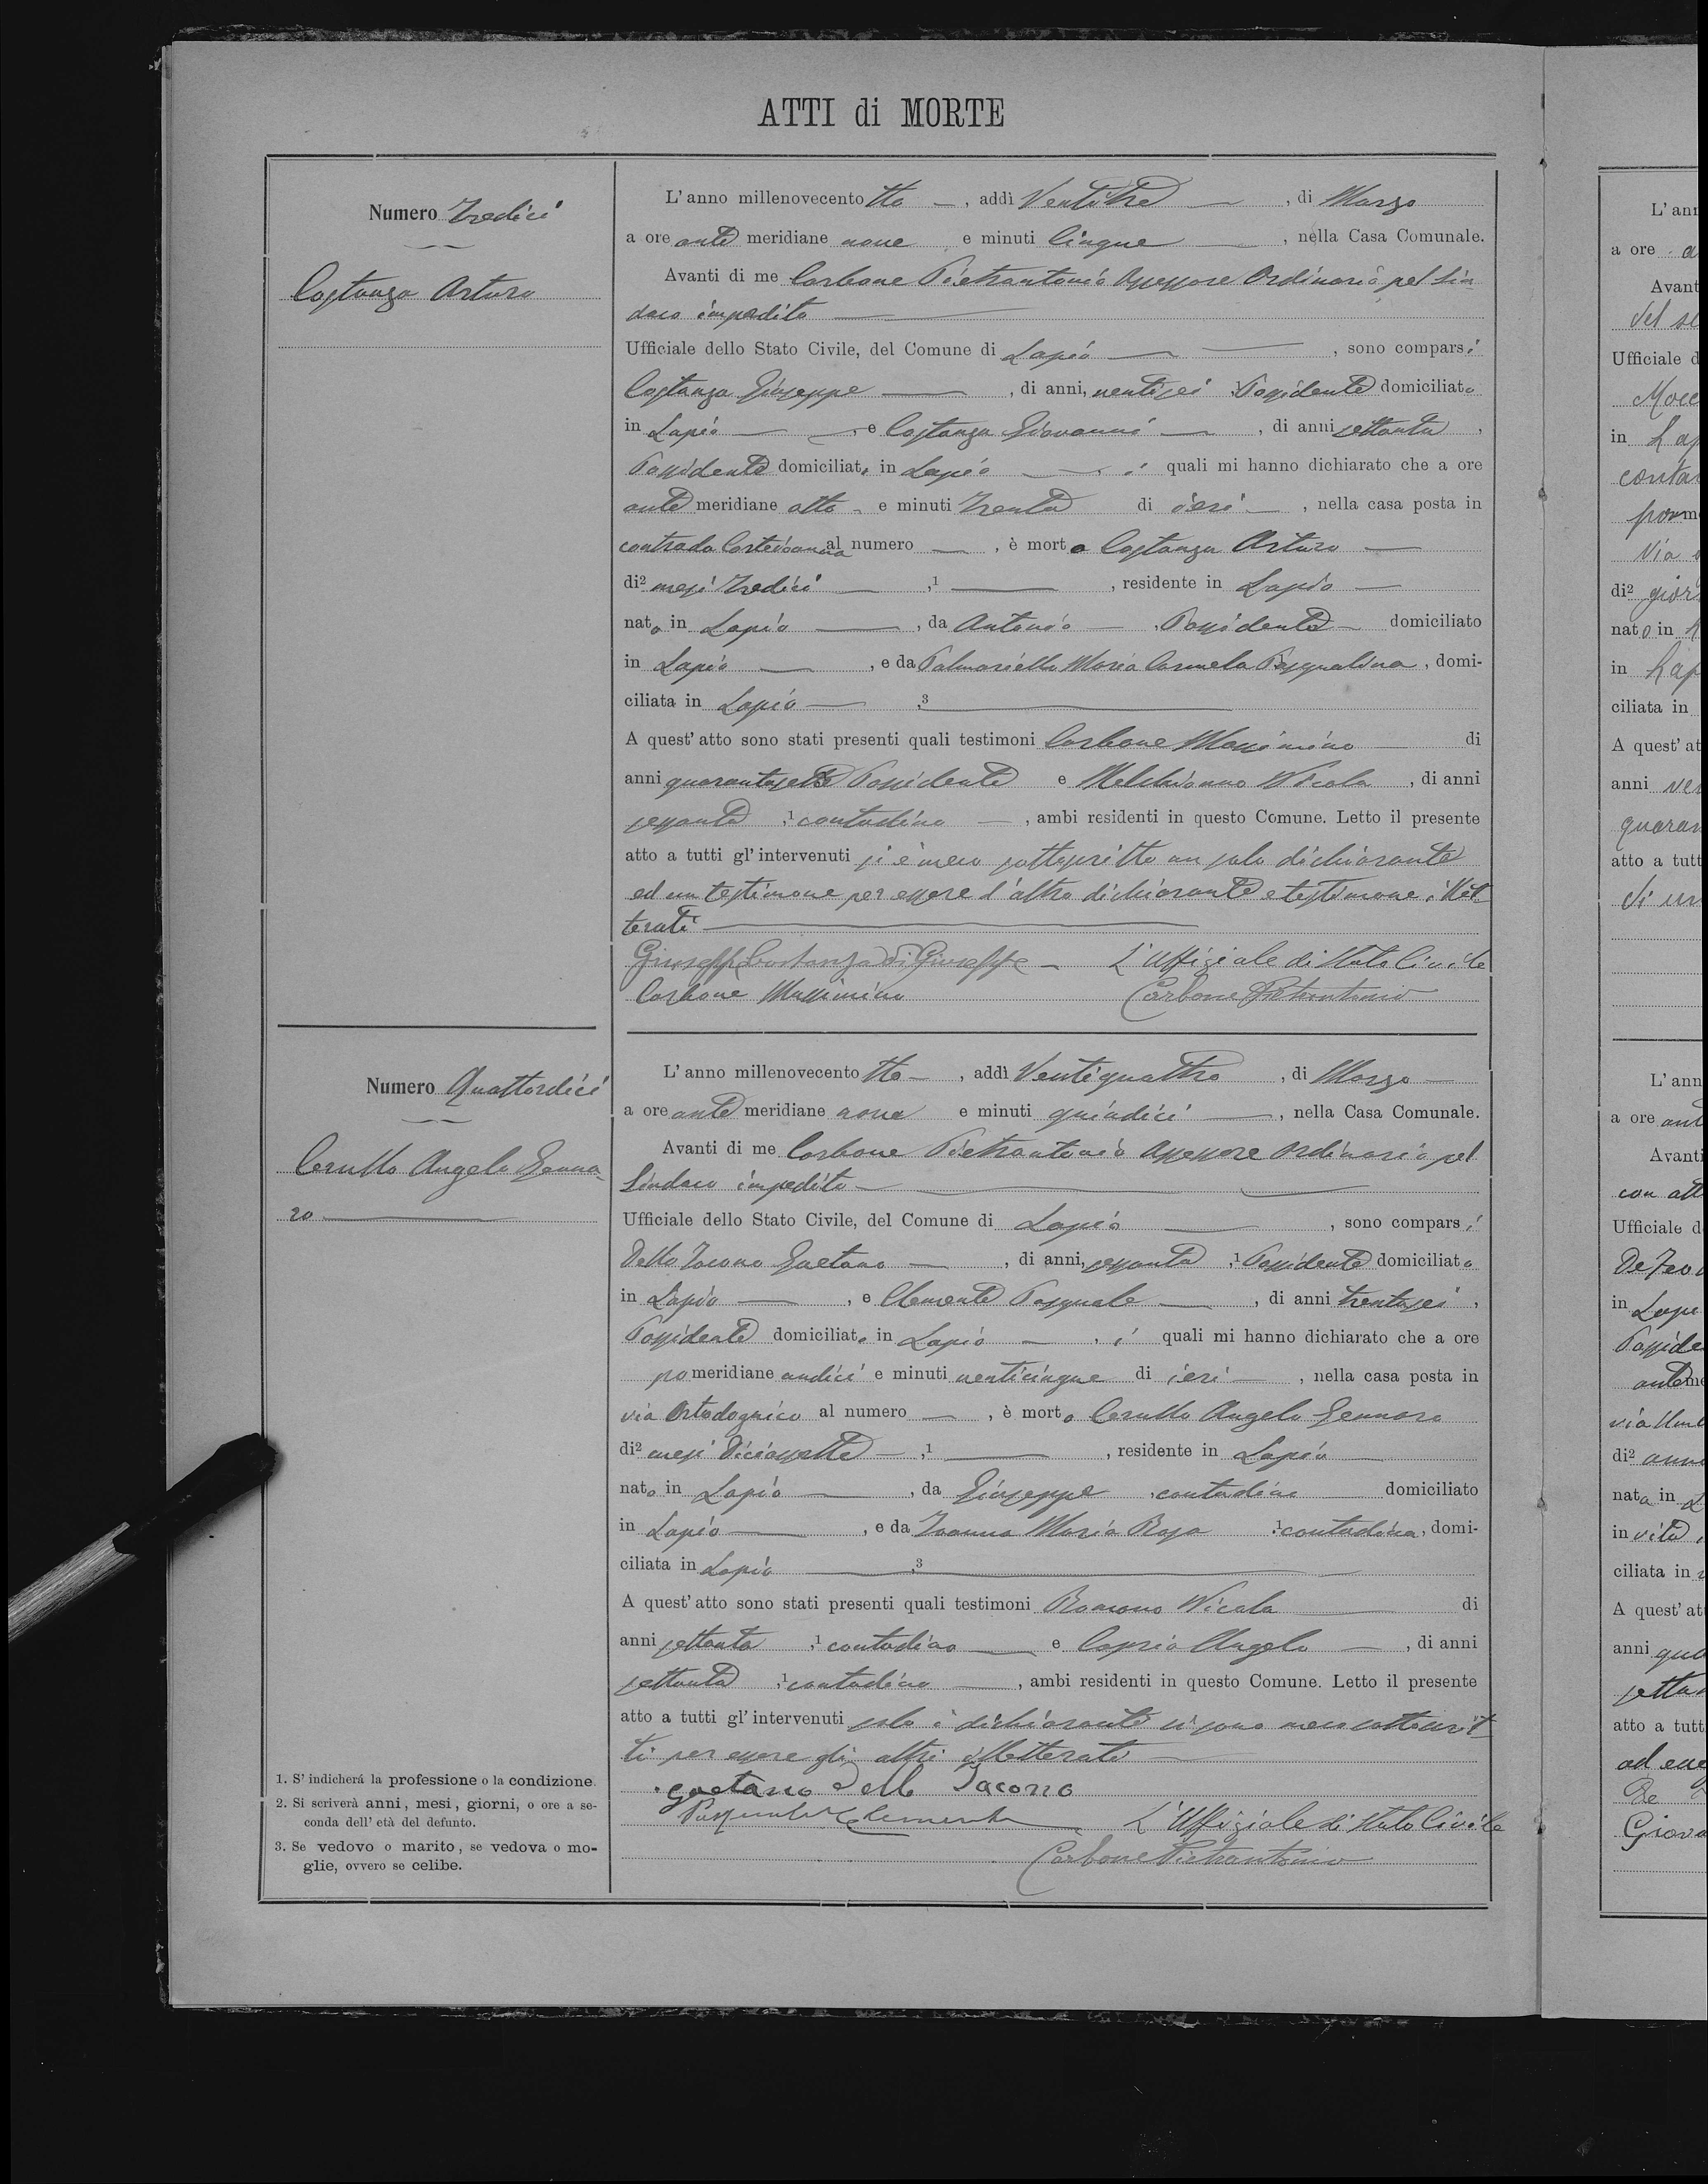 ATTI di MORTE
Numero Tredici
Costanza Arturo
L'anno millenovecento tto, addì Ventitre, di Marzo
a ore ante meridiane nove e minuti Cinque, nella Casa Comunale.
Avanti di me Carbone Pietrantonio Assessore Ordinario pel Sin
daco impedito
Ufficiale dello Stato Civile, del Comune di Lapio, sono comparsi
Costanza Giuseppe, di anni, ventisei Possidente domiciliato
in Lapio, e Costanza Giovanni, di anni settanta,
Possidente domiciliato in Lapio, i quali mi hanno dichiarato che a ore
ante meridiane otto e minuti Trenta di ieri, nella casa posta in
contrada al numero, è morto Costanza Arturo
di² mesi Tredici,¹, residente in Lapio
nato in Lapio, da Antonio, Possidente domiciliato
in Lapio, e da Palmariello Maria Carmela Pasqualina, domi-
ciliata in Lapio ,³
A quest'atto sono stati presenti quali testimoni Carbone Massimino di
anni quarantasette Possidente e Melchionno Nicola, di anni
sessanta,¹ contadino, ambi residenti in questo Comune. Letto il presente
atto a tutti gl'intervenuti si è meco sottoscritto un solo dichiarante
ed un testimone per essere l'altro dichiarante e testimone illet
terati
Giuseppe Costanza di Giuseppe L'Uffiziale di Stato Civile
Carbone Massimino Carbone Pietrantonio
Numero Quattordici
Cerullo Angelo Genna-
ro
L'anno millenovecento tto, addì Ventiquattro, di Marzo
a ore ante meridiane nove e minuti quindici, nella Casa Comunale.
Avanti di me Carbone Pietrantonio Assessore Ordinario pel
Sindaco impedito
Ufficiale dello Stato Civile, del Comune di Lapio, sono comparsi
Dello Iacono Gaetano, di anni, sessanta,¹ Possidente domiciliato
in Lapio, e Clemente Pasquale, di anni trentasei,
Possidente domiciliato in Lapio, i quali mi hanno dichiarato che a ore
pomeridiane undici e minuti venticinque di ieri, nella casa posta in
via Ortodognico al numero, è morto Cerullo Angelo Gennaro
di² mesi Diciassette,¹, residente in Lapio
nato in Lapio, da Giuseppe, contadino domiciliato
in Lapio, e da Ioanna Maria Rosa,¹ contadina, domi-
ciliata in Lapio ,³
A quest'atto sono stati presenti quali testimoni Romano Nicola di
anni settanta,¹ contadino e Caprio Angelo, di anni
settanta,¹ contadino, ambi residenti in questo Comune. Letto il presente
atto a tutti gl'intervenuti solo i dichiaranti si sono meco sottoscrit
ti per essere gli altri illetterati
Gaetano Dello Iacono
Pasquale Clemente L'Uffiziale di Stato Civile
Carbone Pietrantonio
1. S'indicherá la professione o la condizione.
2. Si scriverà anni, mesi, giorni, o ore a se-
conda dell'età del defunto.
3. Se vedovo o marito, se vedova o mo-
glie, ovvero se celibe.